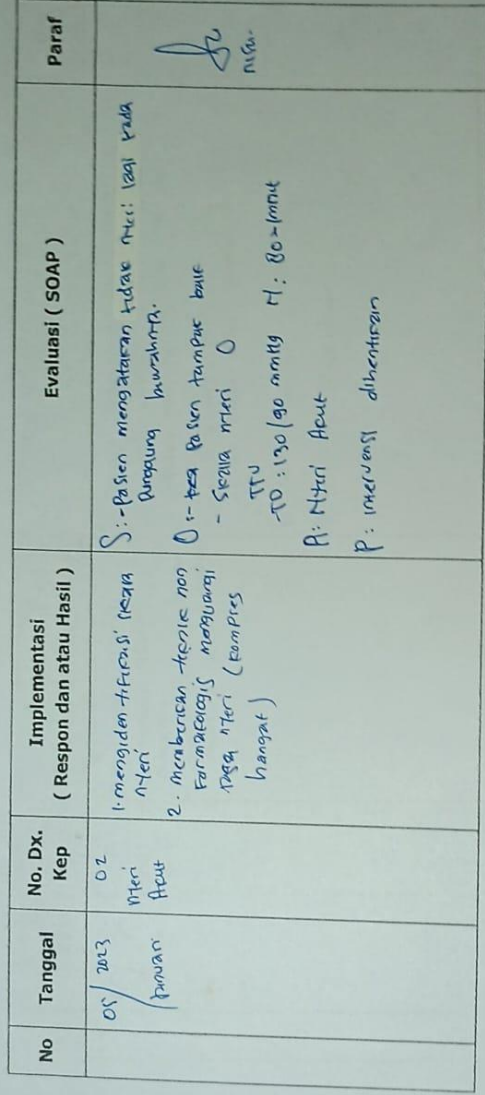 No
Tanggal
No. Dx.
Kep
Implementasi
( Respon dan atau Hasil )
Evaluasi ( SOAP )
Paraf
05/ 2023
/Januari
02
nyeri
Akut
1. mengidentifikasi skala
nyeri
2. memberikan teknik non
Farmakologis mengurangi
rasa nyeri (kompres
hangat)
S: - Pasien mengatakan tidak nyeri lagi pada
Punggung bawahnya.
O: - Pasien tampak baik
- Skala nyeri 0
TTV
-TD: 130/90 mmHg N: 80x/mnit
A: Nyeri Akut
P: intervensi dihentikan